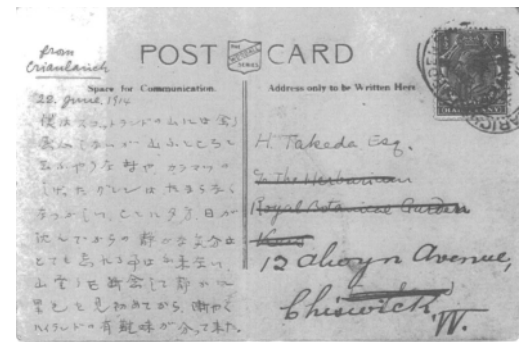 from
Crianlarich
POST CARD
THE
WRENCH
SERIES
Space for Communication.
Address only to be Written Here
28. June, 1914
僕はスコットランドの山には余り
感心しないが 山ふところと
云ふやうな村や、カラマツの
しげったグレンは たまらなく
なつかしい、ことに夕方、日が
沈んでからの静かな気分は
とても忘れる事は出来ない、
山登りも断念して静かに
景色を見初めてから、漸やく
ハイランドの有難味が分って来た。
H. Takeda Esq.
c/o The Herbarium
Royal Botanical Garden
Kew
12 Alwyn Avenue,
Chiswick
W.